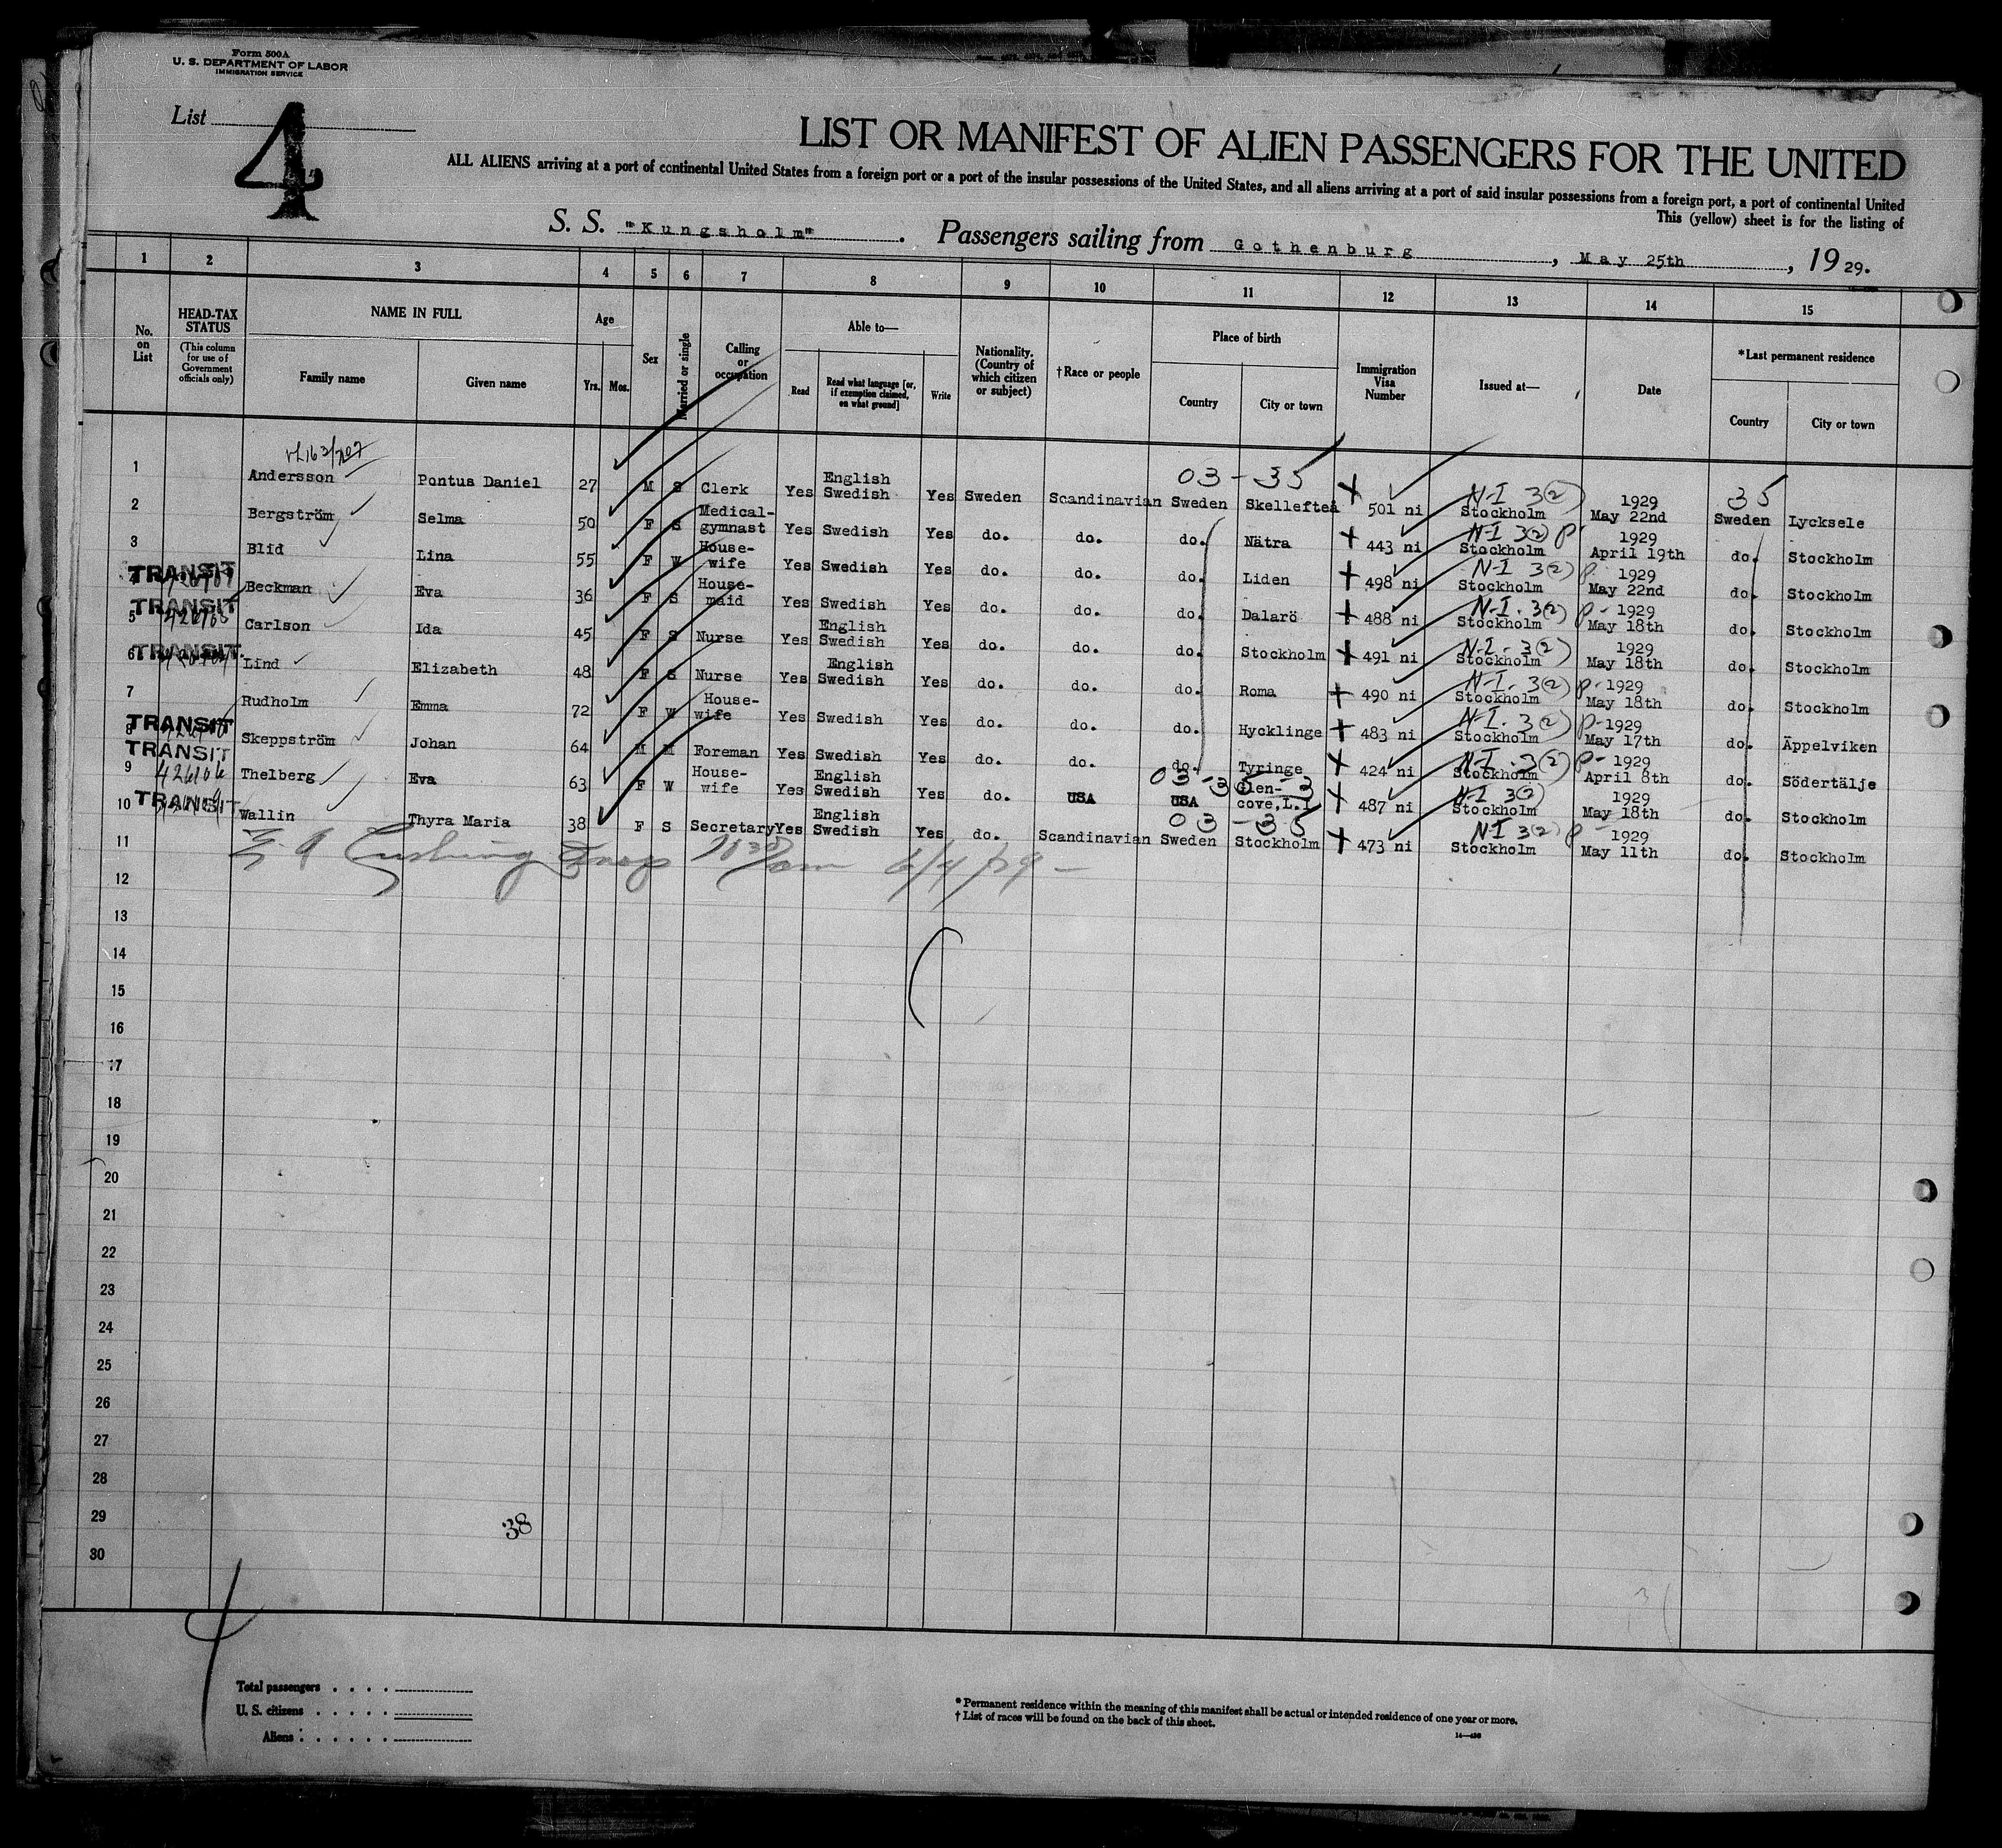 Form 500A
U. S. DEPARTMENT OF LABOR
IMMIGRATION SERVICE
List 4
LIST OR MANIFEST OF ALIEN PASSENGERS FOR THE UNITED
ALL ALIENS arriving at a port of continental United States from a foreign port or a port of the insular possessions of the United States, and all aliens arriving at a port of said insular possessions from a foreign port, a port of continental United
This (yellow) sheet is for the listing of
S. S. "Kungsholm". Passengers sailing from Gothenburg, May 25th, 19 29.
1 2 3 4 5 6 7 8 9 10 11 12 13 14 15
No. on List
HEAD-TAX STATUS (This column for use of Government officials only)
NAME IN FULL
Family name Given name
Age
Yrs. Mos.
Sex
Married or single
Calling or occupation
Able to—
Read Read what language [or, if exemption claimed, on what ground] Write
Nationality. (Country of which citizen or subject)
†Race or people
Place of birth
Country City or town
Immigration Visa Number
Issued at—
Date
*Last permanent residence
Country City or town
03-35 N-I 3(2) 35
1 Andersson Pontus Daniel 27 M S Clerk Yes English Swedish Yes Sweden Scandinavian Sweden Skellefteå 501 ni Stockholm 1929 May 22nd Sweden Lycksele
N-I 3(2) P
2 Bergström Selma 50 F S Medical-gymnast Yes Swedish Yes do. do. do. Nätra 443 ni Stockholm 1929 April 19th do. Stockholm
N-I 3(2) P
3 Blid Lina 55 F W House-wife Yes Swedish Yes do. do. do. Liden 498 ni Stockholm 1929 May 22nd do. Stockholm
TRANSIT N-I. 3(2) P-
4 Beckman Eva 36 F S House-maid Yes Swedish Yes do. do. do. Dalarö 488 ni Stockholm 1929 May 18th do. Stockholm
TRANSIT N-I- 3(2)
5 Carlson Ida 45 F S Nurse Yes English Swedish Yes do. do. do. Stockholm 491 ni Stockholm 1929 May 18th do. Stockholm
TRANSIT. N-I. 3(2) P-
6 Lind Elizabeth 48 F S Nurse Yes English Swedish Yes do. do. do. Roma 490 ni Stockholm 1929 May 18th do. Stockholm
N-I. 3(2) P-
7 Rudholm Emma 72 F W House-wife Yes Swedish Yes do. do. do. Hycklinge 483 ni Stockholm 1929 May 17th do. Äppelviken
TRANSIT N-I. 3(2) P-
8 Skeppström Johan 64 M M Foreman Yes Swedish Yes do. do. do. Tyringe 424 ni Stockholm 1929 April 8th do. Södertälje
TRANSIT 42606 N-I 3(2)
9 Thelberg Eva 63 F W House-wife Yes English Swedish Yes do. USA USA Glen-cove, L.I 487 ni Stockholm 1929 May 18th do. Stockholm
TRANSIT 03-35 N-I 3(2) P
10 Wallin Thyra Maria 38 F S Secretary Yes English Swedish Yes do. Scandinavian Sweden Stockholm 473 ni Stockholm 1929 May 11th do. Stockholm
11 Cushing 6/4/29-
12
13
14
15
16
17
18
19
20
21
22
23
24
25
26
27
28
29 38
30
4
Total passengers
U. S. citizens
Aliens
* Permanent residence within the meaning of this manifest shall be actual or intended residence of one year or more.
† List of races will be found on the back of this sheet.